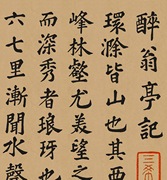 醉翁亭記
環滁皆山也其西
峰林壑尤美望之
而深秀者琅玡也
六七里漸聞水聲